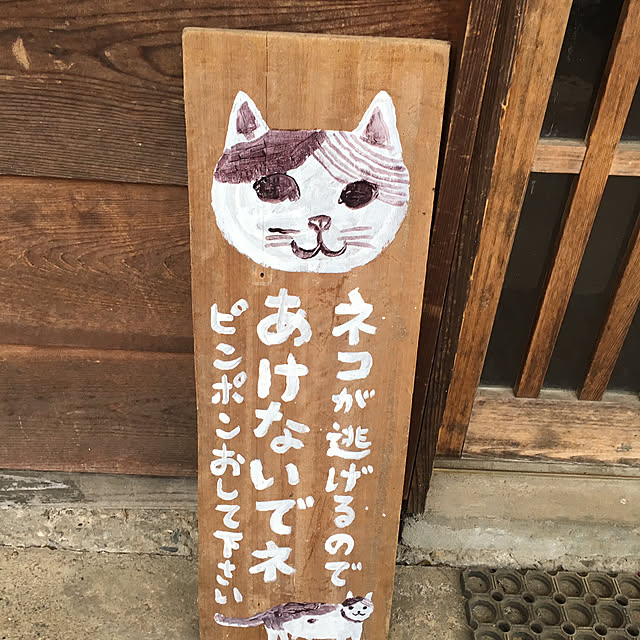 ネコが逃げるので
あけないでネ
ピンポンおして下さい